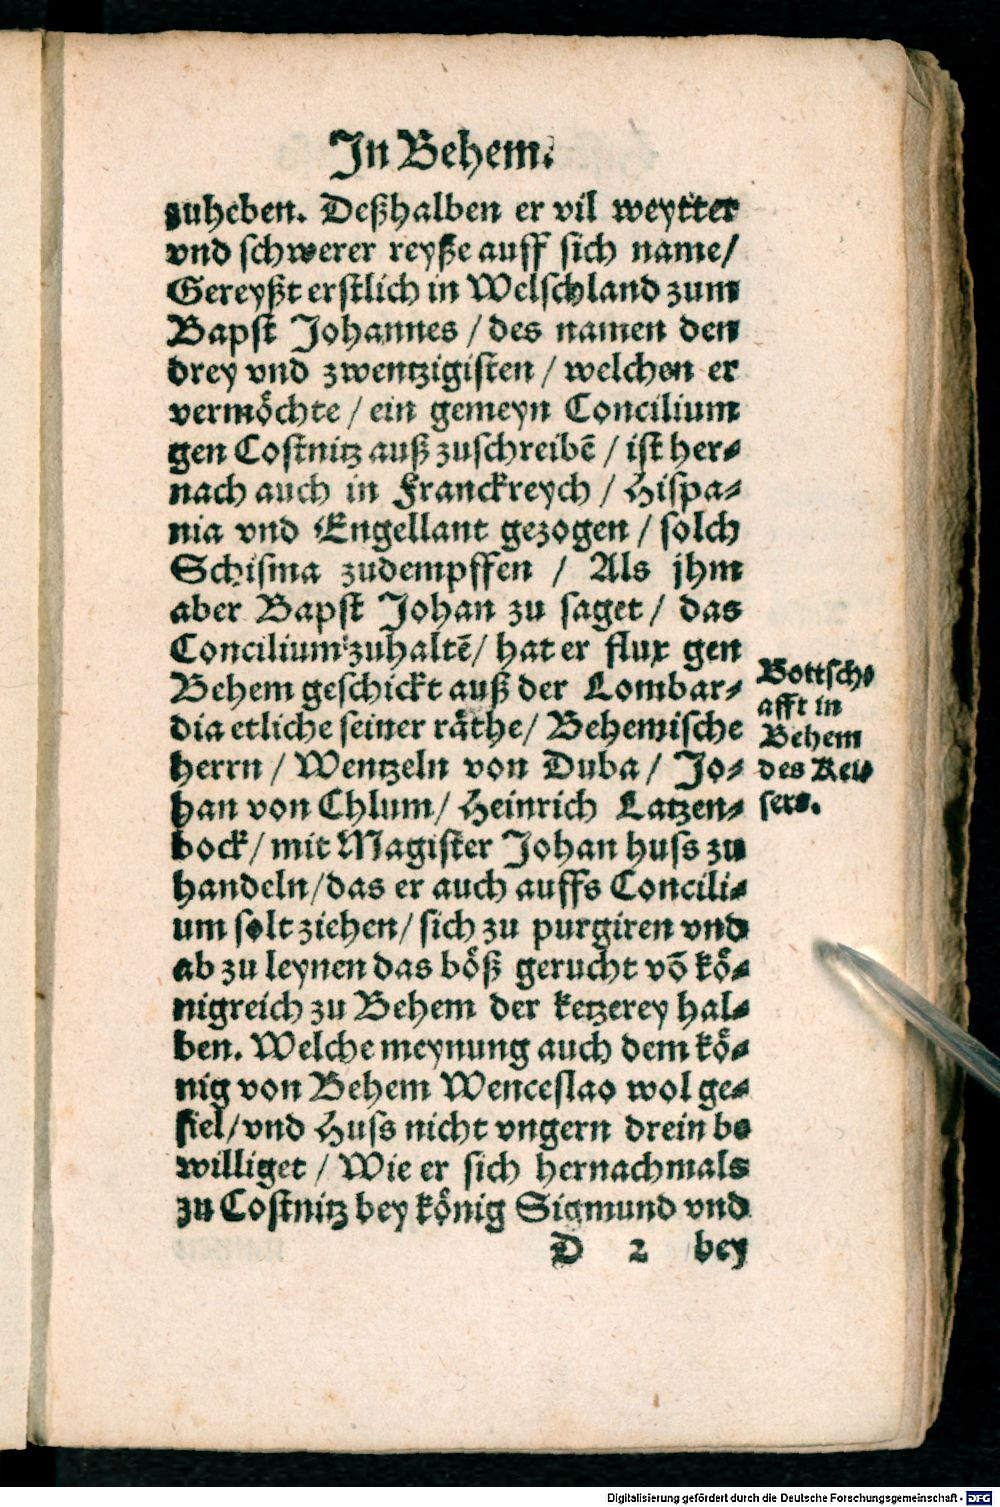 In Behem.
zuheben. Deßhalben er vil weytter
vnd schwerer reyße auff sich name/
Gereyßt erstlich in Welschland zum
Bapst Johannes / des namen den
drey vnd zwentzigisten / welchen er
vermöchte / ein gemeyn Concilium
gen Costnitz auß zuschreibẽ / ist her⸗
nach auch in Franckreych / Hispa⸗
nia vnd Engellant gezogen / solch
Schisma zudempffen / Als jhm
aber Bapst Johan zu saget / das
Concilium zuhaltẽ / hat er flux gen
Behem geschickt auß der Lombar⸗
dia etliche seiner räthe / Behemische
herrn / Wentzeln von Duba / Jo⸗
han von Chlum / Heinrich Latzen⸗
bock / mit Magister Johan huss zu
handeln / das er auch auffs Concili⸗
um solt ziehen / sich zu purgiren vnd
ab zu leynen das böß gerucht võ kö⸗
nigreich zu Behem der ketzerey hal⸗
ben. Welche meynung auch dem kö⸗
nig von Behem Wenceslao wol ge⸗
fiel / vnd Huss nicht vngern drein be
williget / Wie er sich hernachmals
zu Costnitz bey könig Sigmund vnd
D 2 bey
Bottsch⸗
afft in
Behem
des Kei⸗
sers.
Digitalisierung gefördert durch die Deutsche Forschungsgemeinschaft - DFG